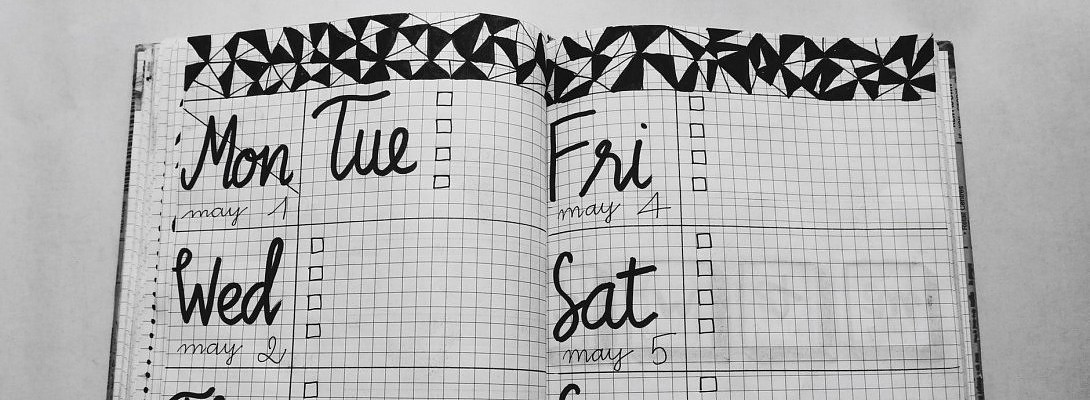 Mon
may 1
Tue
Wed
may 2
Fri
may 4
Sat
may 5